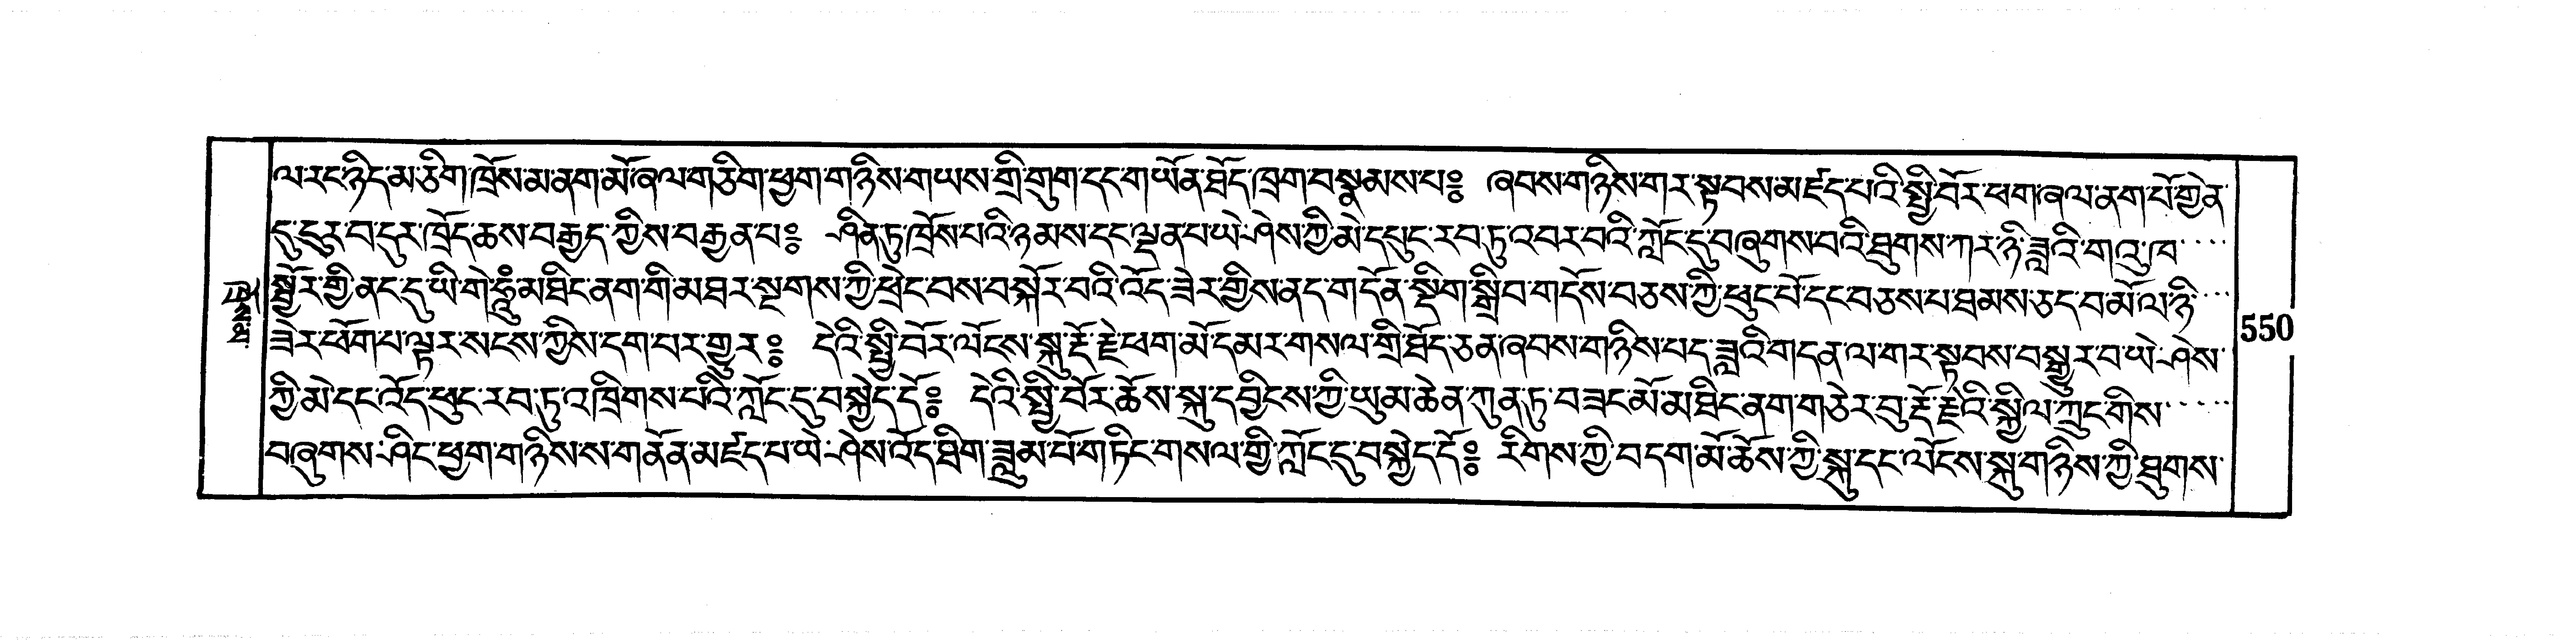 ལ་རང་ཉིད་མ་ཅིག་ཁྲོས་མ་ནག་མོ་ཞལ་གཅིག་ཕྱག་གཉིས་གཡས་གྲི་གུག་དང་གཡོན་ཐོད་ཁྲག་བསྣམས་པ༔ ཞབས་གཉིས་གར་སྟབས་མཛད་པའི་སྤྱི་བོར་ཕག་ཞལ་ནག་པོ་གྱེན་
དུ་ངུར་བ་དུར་ཁྲོད་ཆས་བརྒྱད་ཀྱིས་བརྒྱན་པ༔ ཤིན་ཏུ་ཁྲོས་པའི་ཉམས་དང་ལྡན་པ་ཡེ་ཤེས་ཀྱི་མེ་དཔུང་རབ་ཏུ་འབར་བའི་ཀློང་དུ་བཞུགས་བའི་ཐུགས་ཀར་ཉི་ཟླའི་གའུ་ཁ་
སྦྱོར་གྱི་ནང་དུ་ཡི་གེ་ཧཱུྃ་མཐིང་ནག་གི་མཐར་སྔགས་ཀྱི་ཕྲེང་བས་བསྐོར་བའི་འོད་ཟེར་གྱིས་ནད་གདོན་སྡིག་སྒྲིབ་གདོས་བཅས་ཀྱི་ཕུང་པོ་དང་བཅས་པ་ཐམས་ཅད་བ་མོ་ལ་ཉི་
ཟེར་ཕོག་པ་ལྟར་སངས་ཀྱིས་དག་པར་གྱུར༔ དེའི་སྤྱི་བོར་ལོངས་སྐུ་རྡོ་རྗེ་ཕག་མོ་དམར་གསལ་གྲི་ཐོད་ཅན་ཞབས་གཉིས་པད་ཟླའི་གདན་ལ་གར་སྟབས་བསྒྱུར་བ་ཡེ་ཤེས་
ཀྱི་མེ་དང་འོད་ཕུང་རབ་ཏུ་འཁྲིགས་པའི་ཀློང་དུ་བསྐྱེད་དོ༔ དེའི་སྤྱི་བོར་ཆོས་སྐུ་དབྱིངས་ཀྱི་ཡུམ་ཆེན་ཀུན་ཏུ་བཟང་མོ་མཐིང་ནག་གཅེར་བུ་རྡོ་རྗེའི་སྐྱིལ་ཀྲུང་གིས་
བཞུགས་ཤིང་ཕྱག་གཉིས་ས་གནོན་མཛད་པ་ཡེ་ཤེས་འོད་ཐིག་ཟླུམ་པོ་གཏིང་གསལ་གྱི་ཀློང་དུ་བསྐྱེད་དོ༔ རིགས་ཀྱི་བདག་མོ་ཆོས་ཀྱི་སྐུ་དང་ལོངས་སྐུ་གཉིས་ཀྱི་ཐུགས་
550